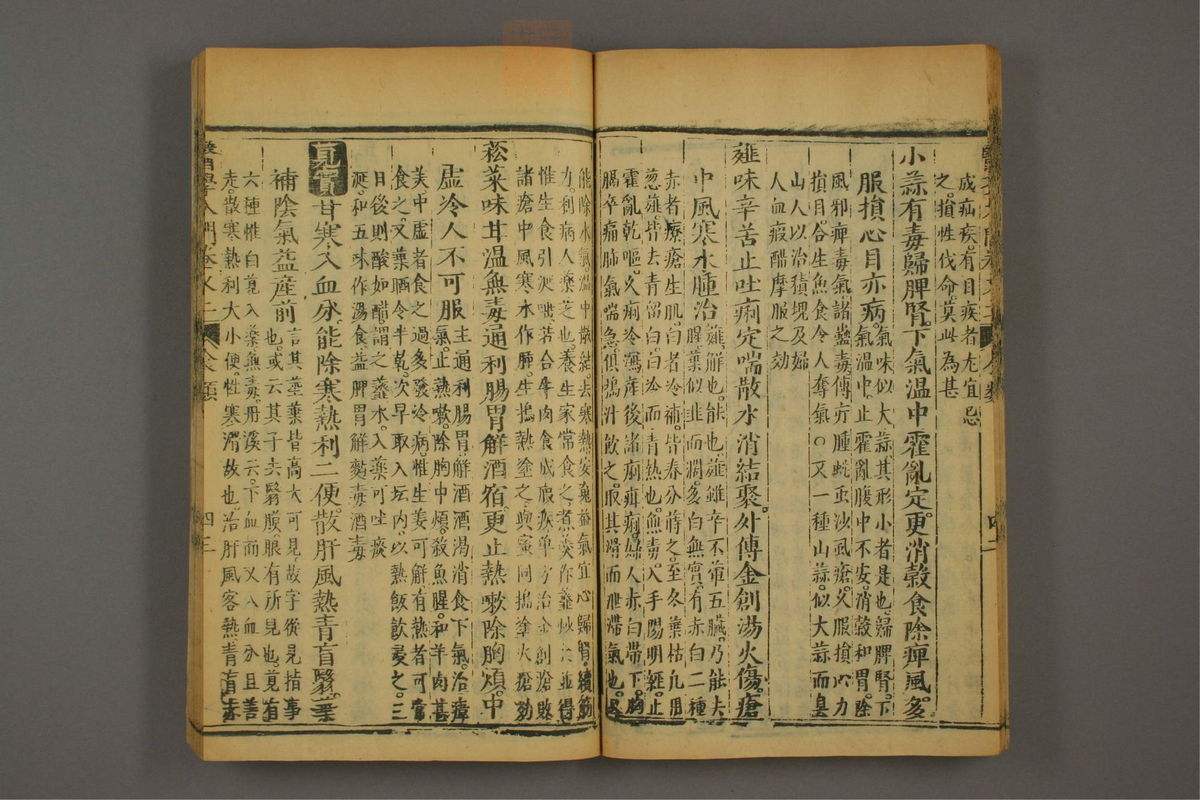 成疝疾有目疾者尤宜忌
之損性伐命莫此為甚
小蒜有毒歸脾腎下氣温中霍亂定更消穀食除痺風多
服損心目亦病氣味似大蒜其形小者是也歸脾腎下
氣温中止霍亂腹中不安消穀和胃除
風邪痺毒氣諸蠱毒傅疔腫蛇虿沙虱瘡久服損心力
損目合生魚食令人奪氣○又一種山蒜似大蒜而臭
山人以治積塊及婦
人血瘕醋摩服之効
薤味辛苦止吐痢定喘散水消結聚外傅金創湯火傷瘡
中風寒水腫治薤解也能也薤雖辛不葷五臟乃能去
腥葉似韭而濶多白無實有赤白二種
赤者療瘡生肌白者冷補皆春分蒔之至冬葉枯凡用
葱薤皆去青留白白冷而青熱也無毒入手陽明經止
霍亂乾嘔久痢冷瀉産後諸痢疳痢婦人赤白帶下胸
膈卒痛肺氣喘急俱搗汁飲之取其滑而泄滯氣也
能除水氣温中散結去寒熱安魂益氣宜心歸骨續筋
力利病人藥芝也養生家常食之煮羹作虀炒灸並得
惟生食引涎唾若合牛肉食成瘕疾單方治金創瘡敗
諸瘡中風寒水作腫生搗熱塗之與蜜同搗塗火瘡効
菘菜味甘温無毒通利腸胃解酒宿更止熱嗽除胸煩中
虚冷人不可服主通利腸胃解酒酒渴消食下氣治瘴
氣止熱嗽除胸中煩殺魚腥和羊肉甚
美中虚者食之過多發冷病惟生姜可解有熱者可常
食之又藥晒令半乾次早取入坛内以熱飯飲㬰之三
日後則酸如醋謂之虀水入藥可吐痰
涎和五味作湯食益脾胃解麪毒酒毒
莧實甘寒入血分能除寒熱利二便散肝風熱青盲翳葉
補陰氣益産前言其莖葉皆高大可見故字從見指事
也或云其子去翳膜眼有所見也莧有
六種惟白莧入藥無毒丹溪云下血而又入血分且善
走散寒熱利大小便性寒滑故也治肝風客熱青盲赤
醫門學入門卷之二
四二